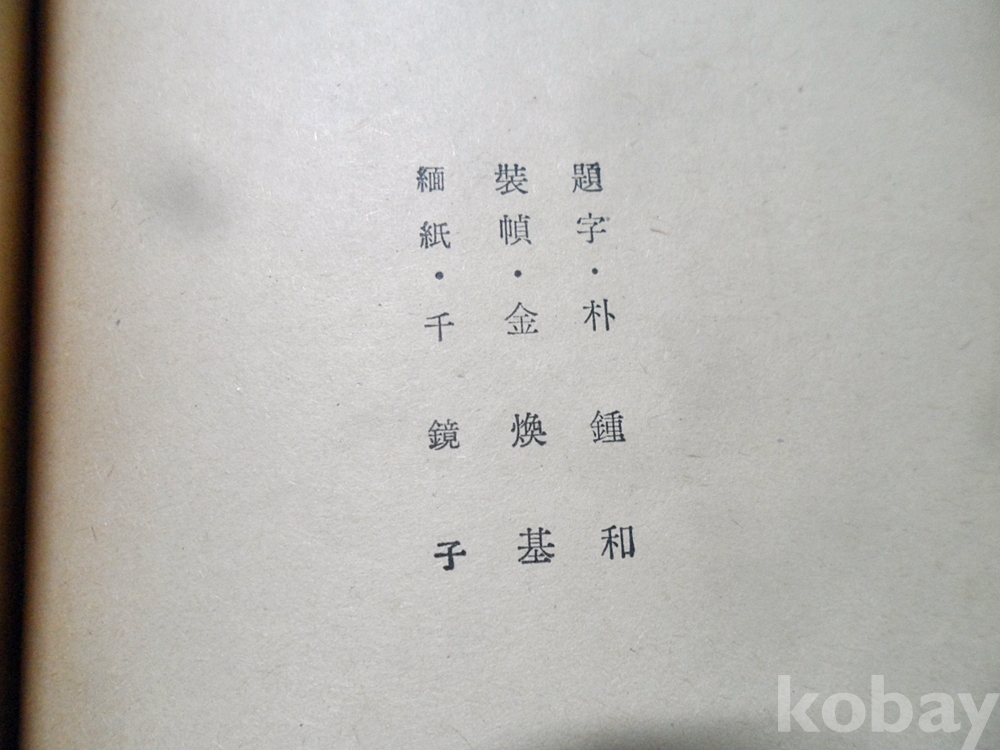 題字・朴鍾和
裝幀・金煥基
緬紙・千鏡子
kobay